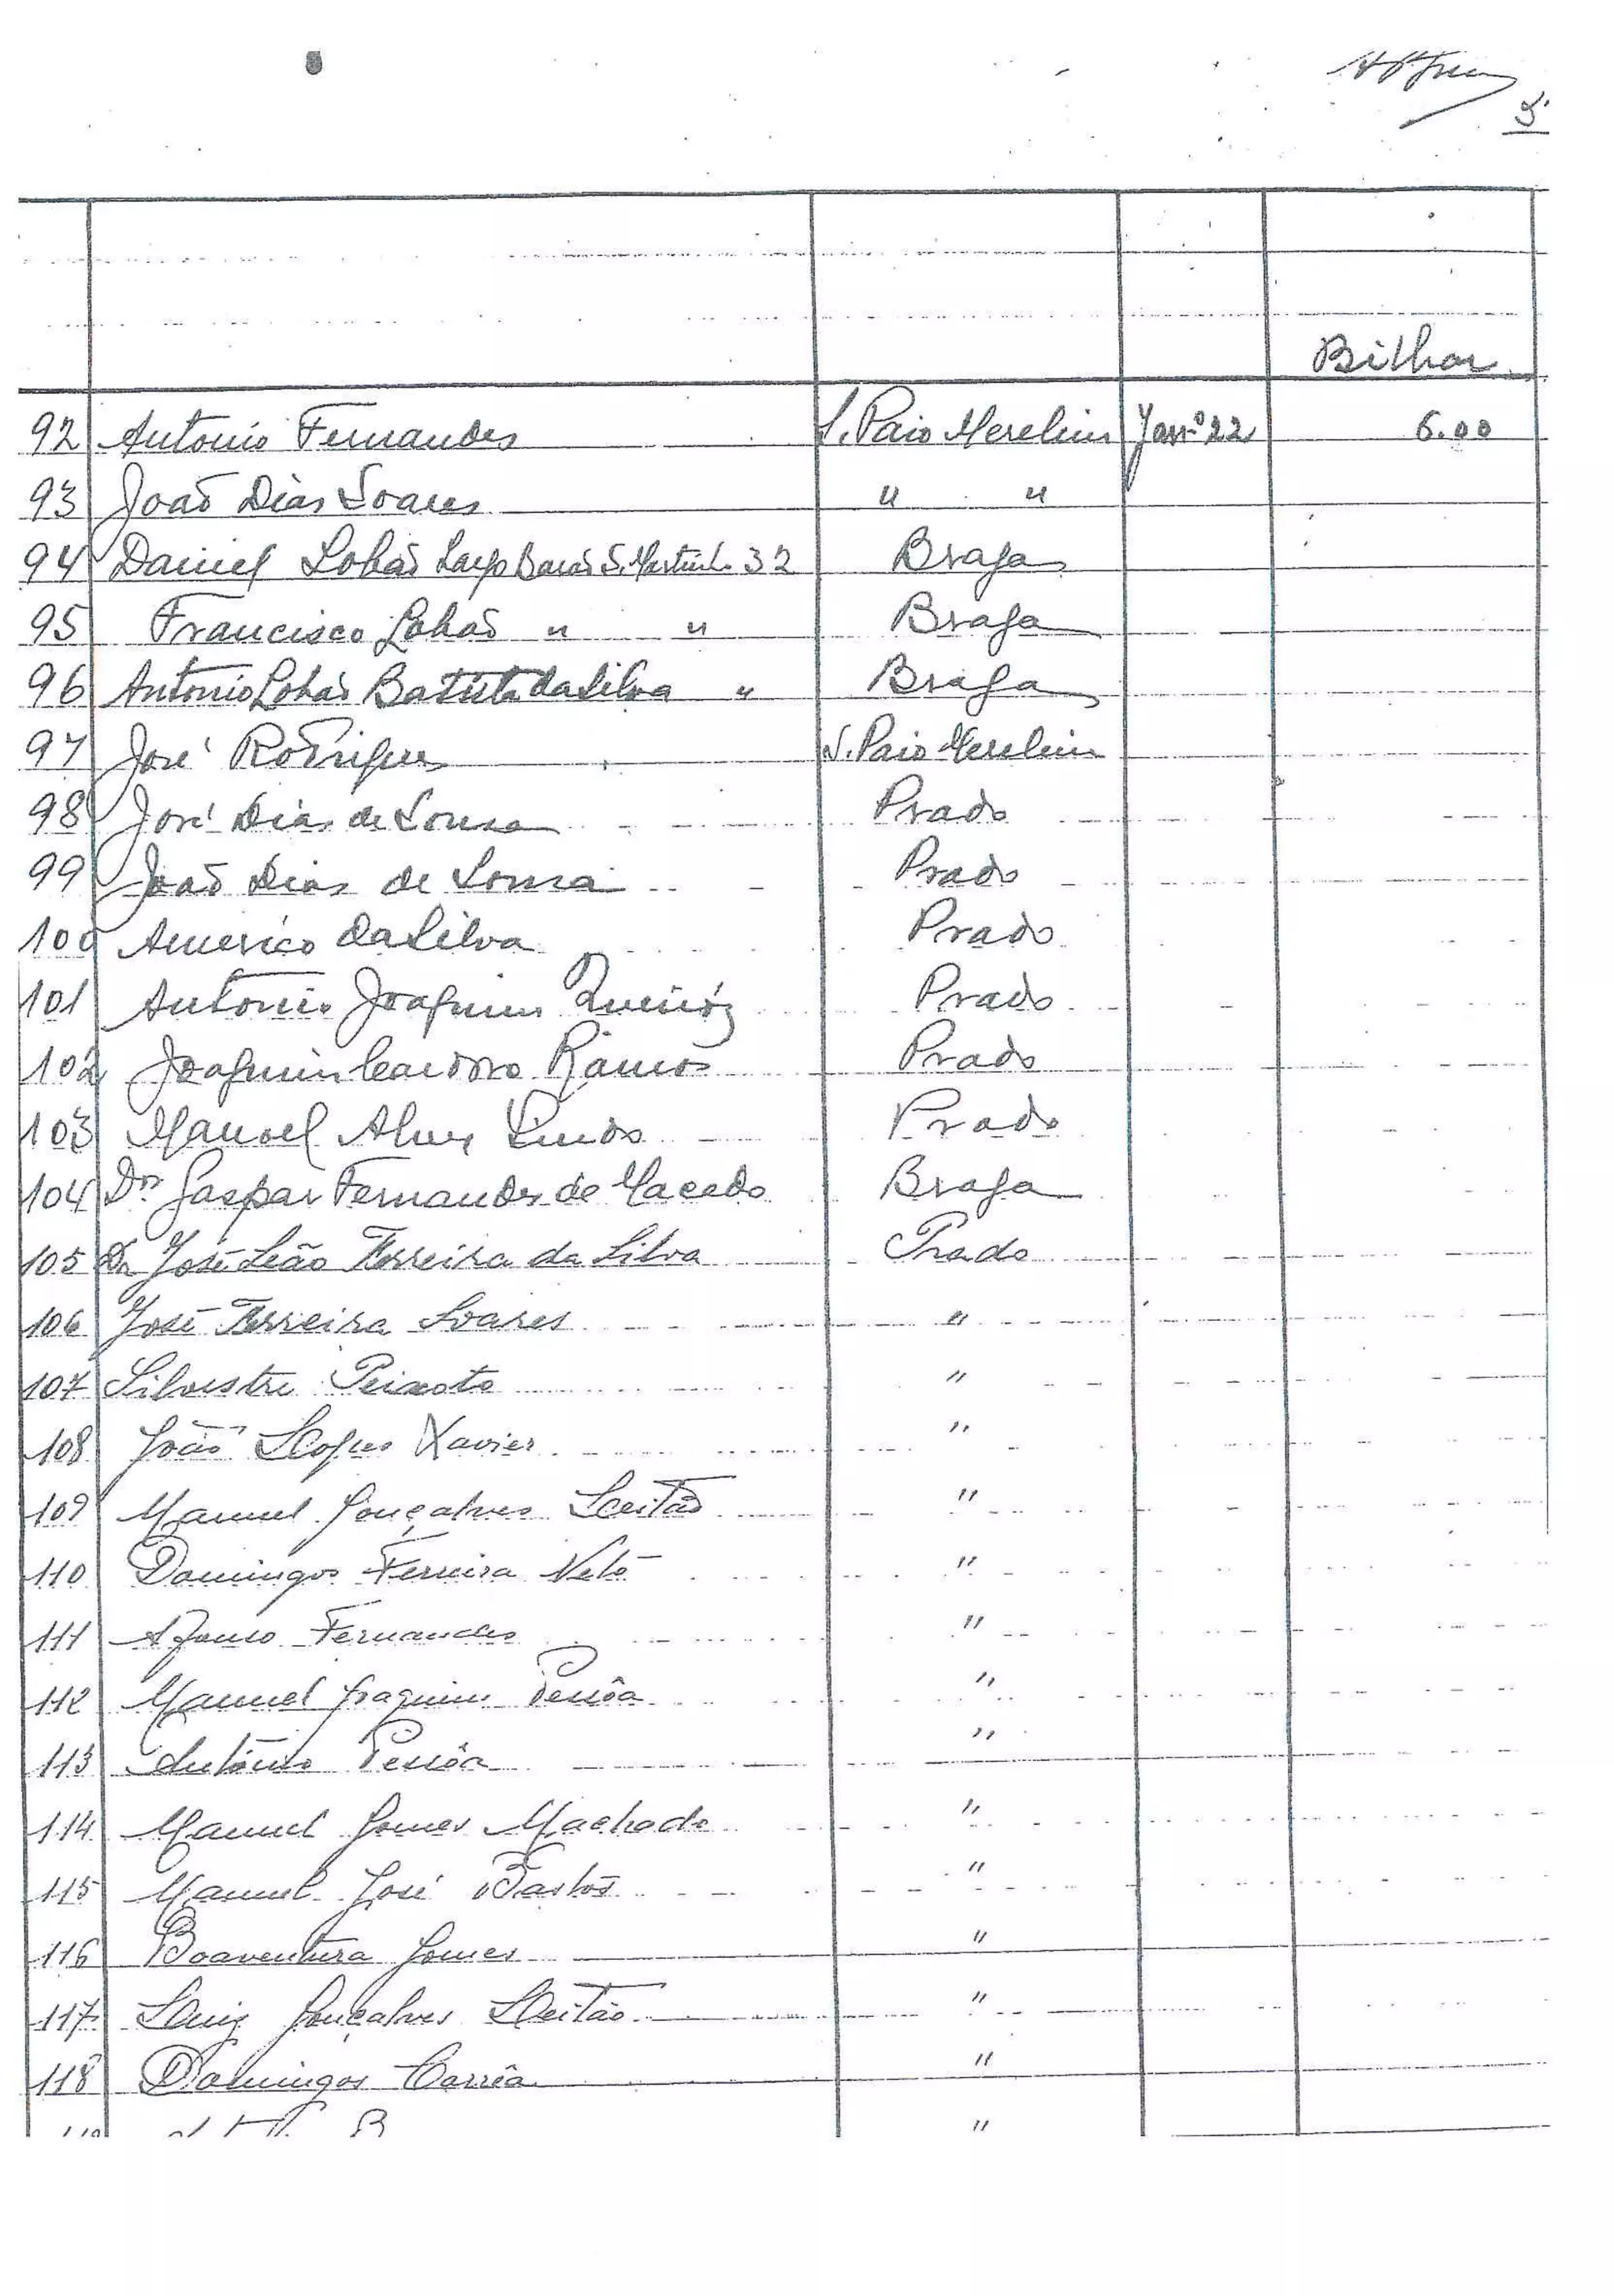 5
Bilhar
92 Antonio Fernandes S. Paio Merelim Janrº 22 6.00
93 João Dias Soares " "
94 Daniel Lobão Largo Barão S. Martinho 32 Braga
95 Francisco Lobão " " Braga
96 Antonio Lobão Batista da Silva " Braga
97 José Rodrigues S. Paio Merelim
98 José Dias de Sousa Prado
99 João Dias de Sousa Prado
100 Americo da Silva Prado
101 Antonio Joaquim Queiróz Prado
102 Joaquim Cardoso Ramos Prado
103 Manoel Alves Prado
104 Dr. Gaspar Fernandes de Macedo Braga
105 Dr José Leão Ferreira da Silva Prado
106 José Ferreira Soares "
107 Silvestre Peixoto "
108 João Lopes Xavier "
109 Manuel Gonçalves Leitão "
110 Domingos Ferreira Neto "
111 Afonso Fernandes "
112 Manuel Joaquim Pessôa "
113 António Pessôa "
114 Manuel Gomes Machado "
115 Manuel José Bastos "
116 Boaventura Gomes "
117 Luiz Gonçalves Leitão "
118 Domingos Corrêa "
"